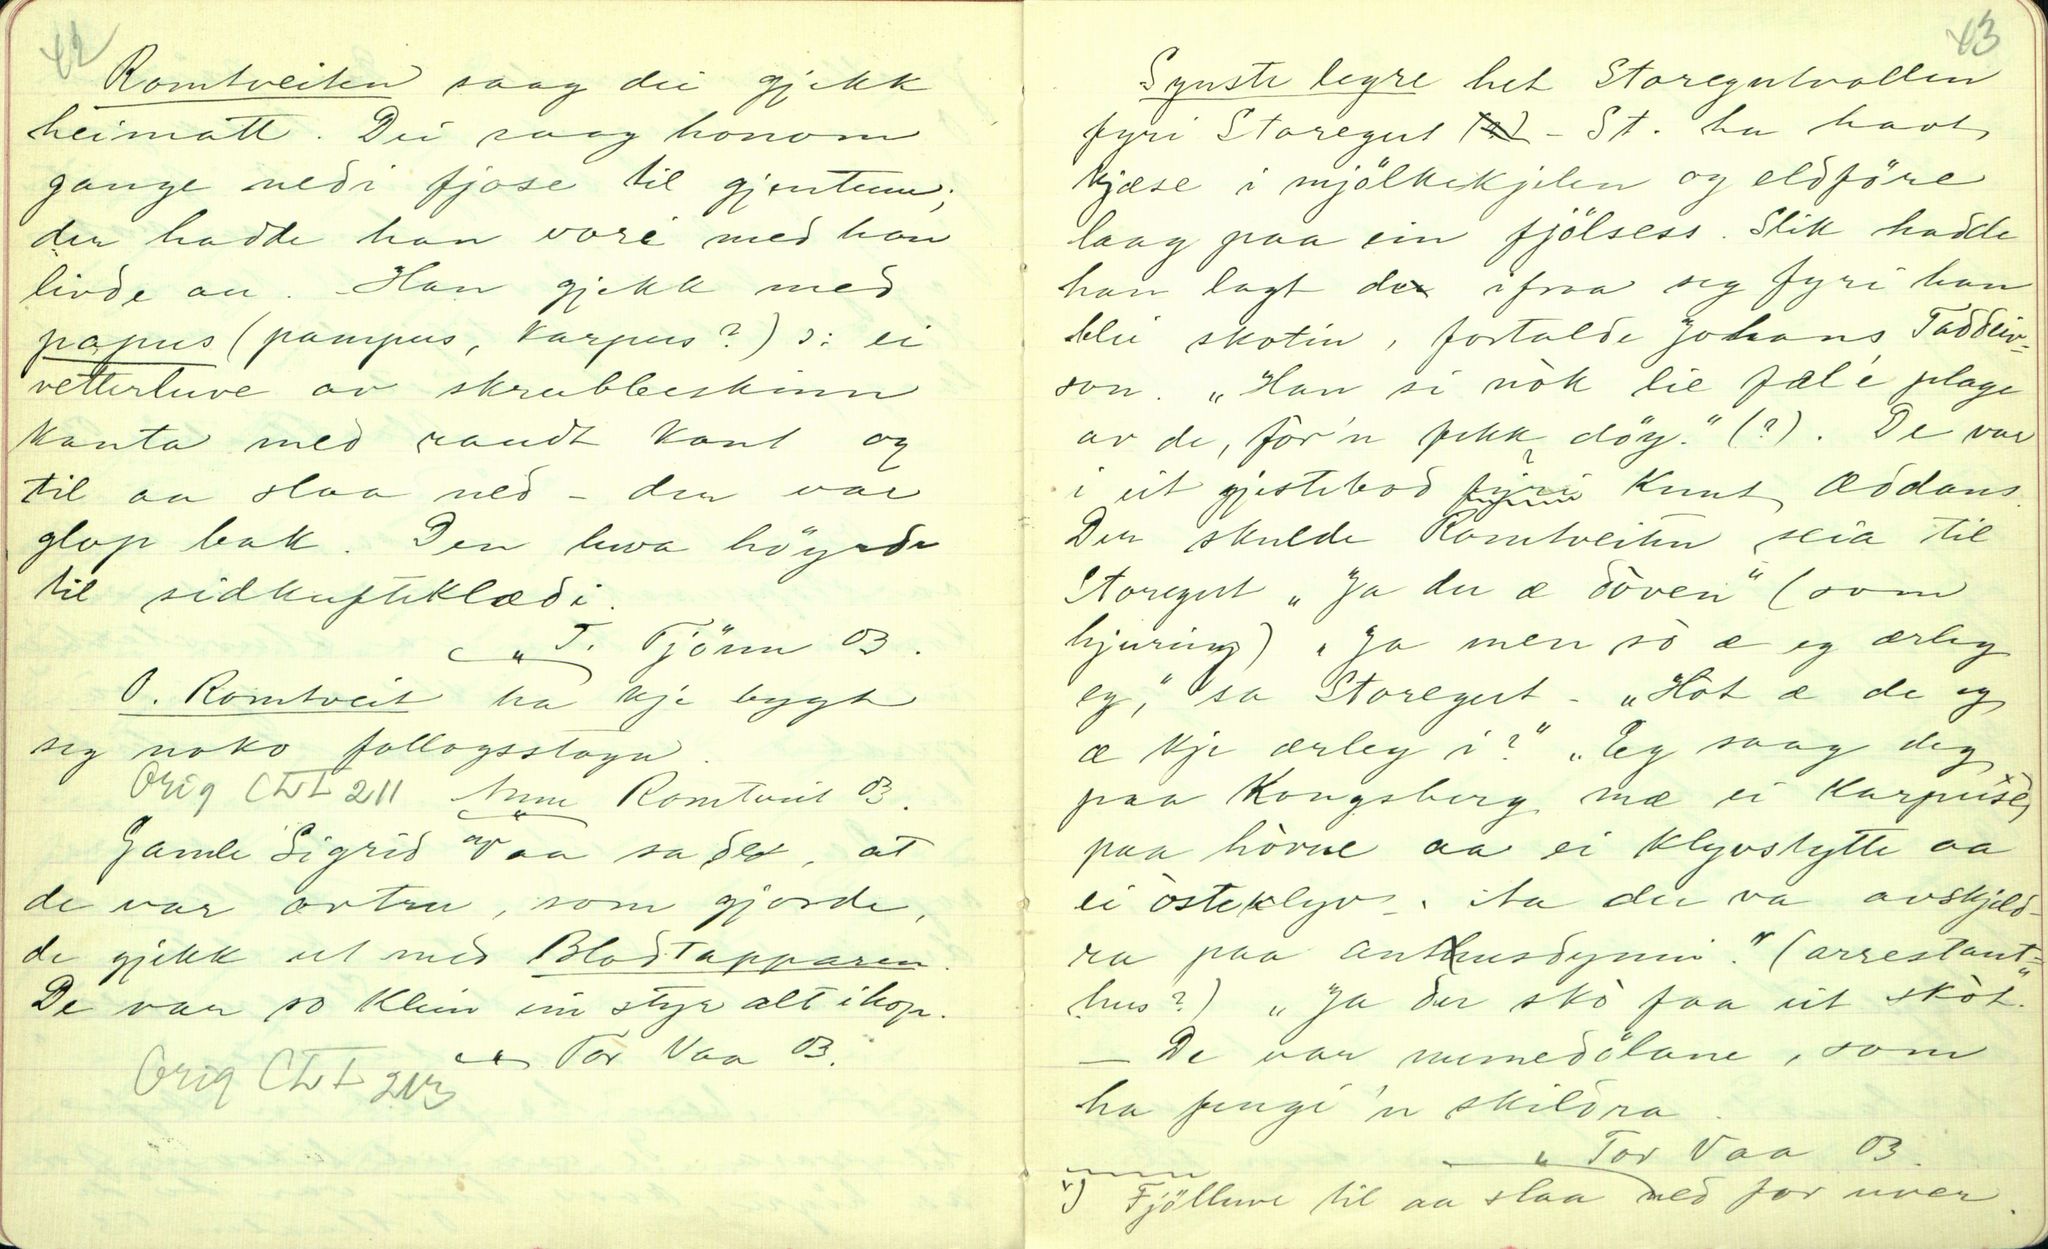 42
Romtveiten saag dei gjekk
heimatt. Dei saag honom
gange nedi fjose til gjentune;
der hadde han vore med han
livde au. Han gjekk med
papus (pampus, karpus?) ɔ: ei
vetterluve av skrubbeskinn
kanta med raudt kant og
til aa slaa ned – den var
glop bak. Den luva høyrde
til sidkufteklædi.
T. Tjönn 03.
O. Romtveit ha kje bygt
seg noko follogsstogu.
Orig CLI 211 Anne Romtveit 03.
Gamle Sigrid Vaa sa det, at
de var ovtru, som gjorde,
de gjekk ut med Blodtapparen.
De var so klein ein styr alt ihop.
Tor Vaa 03.
Orig CLI 213
43
Synste legre het Storegutvollen
fyri Storegut – St. ha havt
kjæse i mjölkekjelen og eldföre
laag paa ein fjölsess. Slik hadde
han lagt de ifraa seg fyri han
blei skotin, fortalde Johans Taddeiv-
son. „Han si nòk lie fæl'e plage
av de, för'n fekk döy." (?). De var
i eit gjestebod fyri Knut Æddans.
Der skulde Romtveiten seia til
Storegut „Ja du æ döven" (som
hjuring) „Ja men sò æ eg ærleg
eg," sa Storegut – „Hòt æ de eg
æ kje ærleg i?" „Eg saag deg
paa Kongsberg mæ ei karpuse x)
paa hòvue aa ei klyvstytte aa
ei òsteklyv. Aa du va avskjeld-
ra paa anthusdynni." (arrestant-
hus?) „Ja du skò faa eit skòt."
– De var numedölane, som
ha fengi 'n skildra.
Tor Vaa 03.
x) Fjölluve til aa slaa ned for uver.